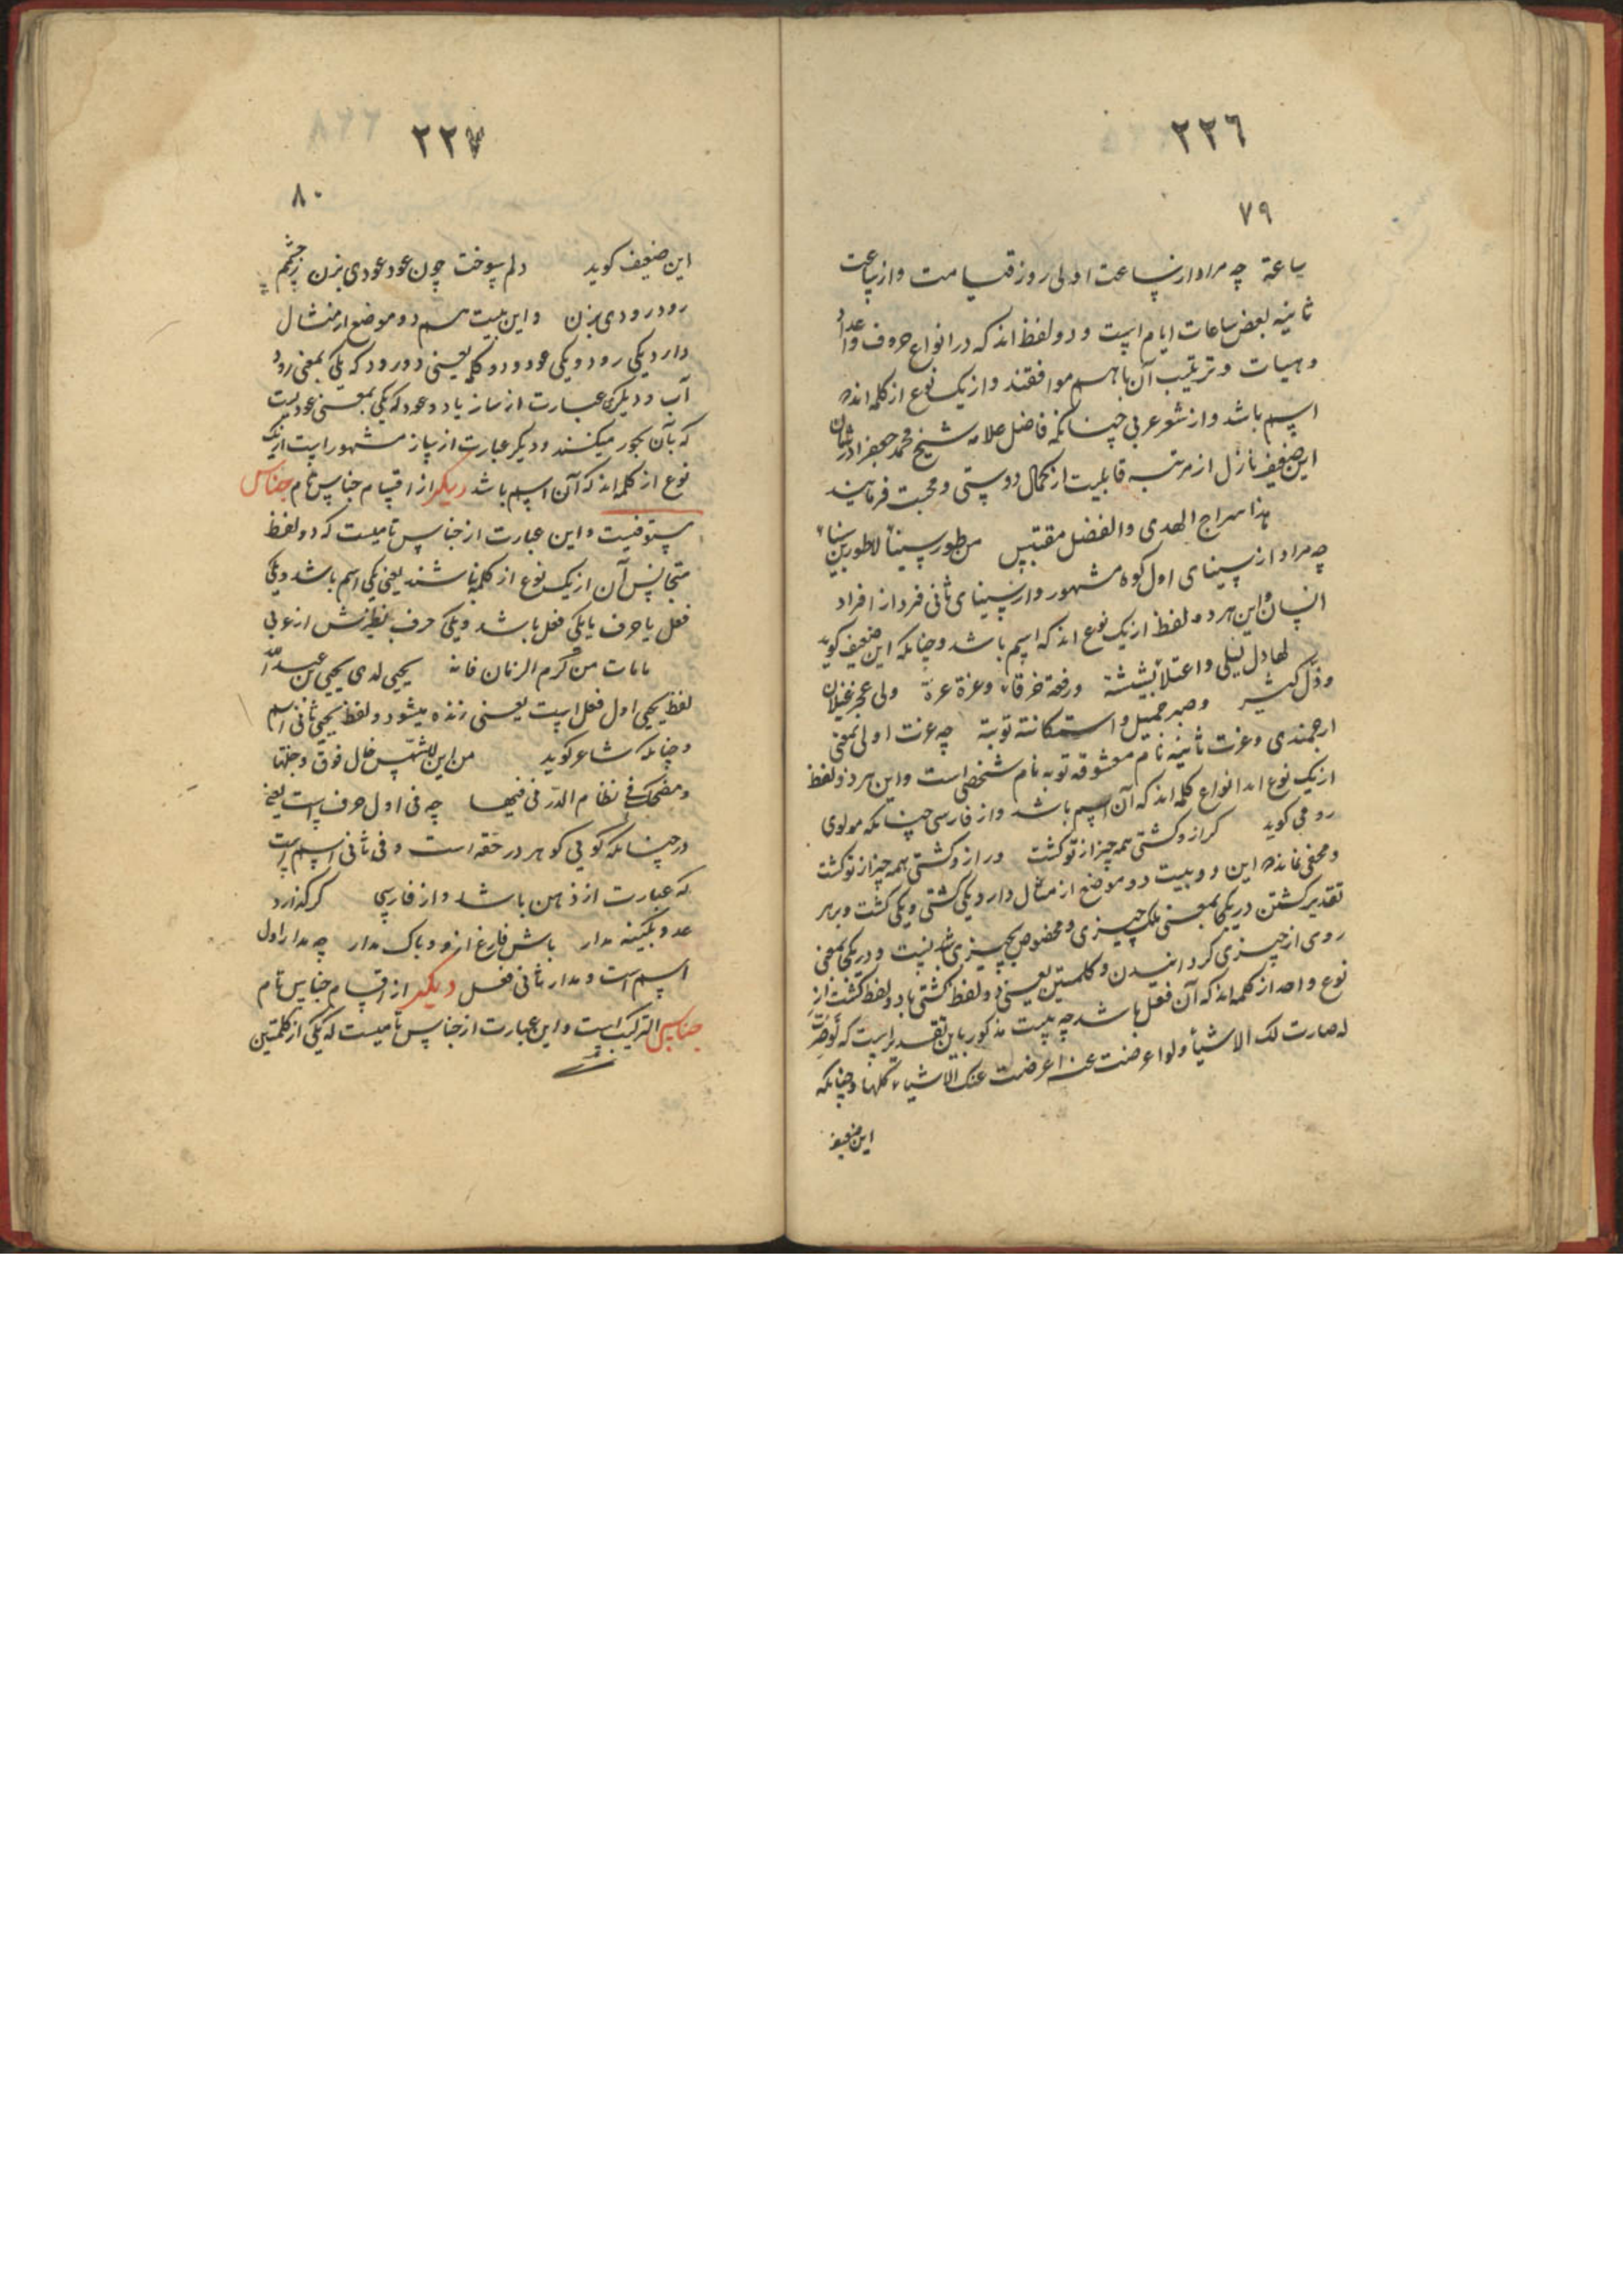 ٢٢٦
٧٩
ساعة چه مراد از ساعت اولی روز قیامت و از ساعت
ثانیه بعض ساعات ایام است و دو لفظ اند که در انواع حروف و اعداد
و هیات و ترتیب آن باهم موافقند و از یک نوع از کلمه اند که
اسم باشد و از شعر عربی چنانکه فاضل علامه شیخ محمد جعفر در شان
این ضعیف نازل از مرتبه قابلیت از کمال دوستی و محبت فرمایند
هذا سراج الهدی والفضل مقتبس من طور سیناء لا طور بن سیناء
چه مراد از سینای اول کوه مشهور و از سینای ثانی فرد از افراد
انسان و این هر دو لفظ از یک نوع اند که اسم باشد و چنانکه این ضعیف کوید
لها دل لیلی و اعتلاء بثینة ورفعة خرقاء وعزة عزة ولی عجز غیلان
وذل کثیر وصبر جمیل و استکانة توبة چه عزت اولی بمعنی
ارجمندی و عزت ثانیه نام معشوقه توبه نام شخصی است و این هر دو لفظ
از یک نوع اند انواع کلمه اند که آن اسم باشد و از فارسی چنانکه مولوی
رومی کوید کر از و کشتی همه چیز از تو کشت ور از و کشتی همه چیز از تو کشت
و مخفی نماند که این دو بیت دو موضع از مثال دارد یکی کشتی و یکی کشت و بر هر
تقدیر کشتن در یکجا بمعنی ملک چیزی و مخصوص بچیزی شدنیست و در یکجا بمعنی
روی از چیزی کردانیدن و کلمتین یعنی دو لفظ کشتی با دو لفظ کشت از
نوع واحد از کلمه اند که آن فعل باشد چه بیت مذکور باین تقدیر است که لو صرت
له صارت لک الاشیاء ولو اعرضت عنه اعرضت عنک الاشیاء کلها و چنانکه
این ضعیف
٢٢٧
٨٠
این ضعیف کوید دلم سوخت چون عود عودی بزن ز چشمم
رود رودی بزن و این بیت هم دو موضع از مثال
دارد یکی رود و یکی عود و دو کلمه یعنی دو رود که یکی بمعنی رود
آب و دیگری عبارت از ساز یا دو عود که یکی بمعنی عودیست
که بآن بخور میکنند و دیکر عبارت از ساز مشهور است از یک
نوع از کلمه اند که آن اسم باشد دیکر از اقسام جناس تام جناس
مستوفیست و این عبارت از جناس تامیست که دو لفظ
متجانس آن از یک نوع از کلمه نباشند یعنی یکی اسم باشد و یکی
فعل یا حرف یا یکی فعل باشد و یکی حرف نظیرش از عربی
مامات من کرم الزمان فانه یحیی لدی یحیی بن عبدالله
لفظ یحیی اول فعل است یعنی زنده میشود و لفظ یحیی ثانی اسم
و چنانکه شاعر کوید من این للشمس خال فوق وجنتها
ومضحک فی نظام الدر فی فیها چه فی اول حرف است یعنی
در چنانکه کوئی کوهر در حقه است و فی ثانی اسم است
که عبارت از دهن باشد و از فارسی کر کذارد
عدو بکینه مدار باش فارغ از و و باک مدار چه مدار اول
اسم است و مدار ثانی فعل دیکر از اقسام جناس تام
جناس الترکیب است و این عبارت از جناس تامیست که یکی از کلمتین